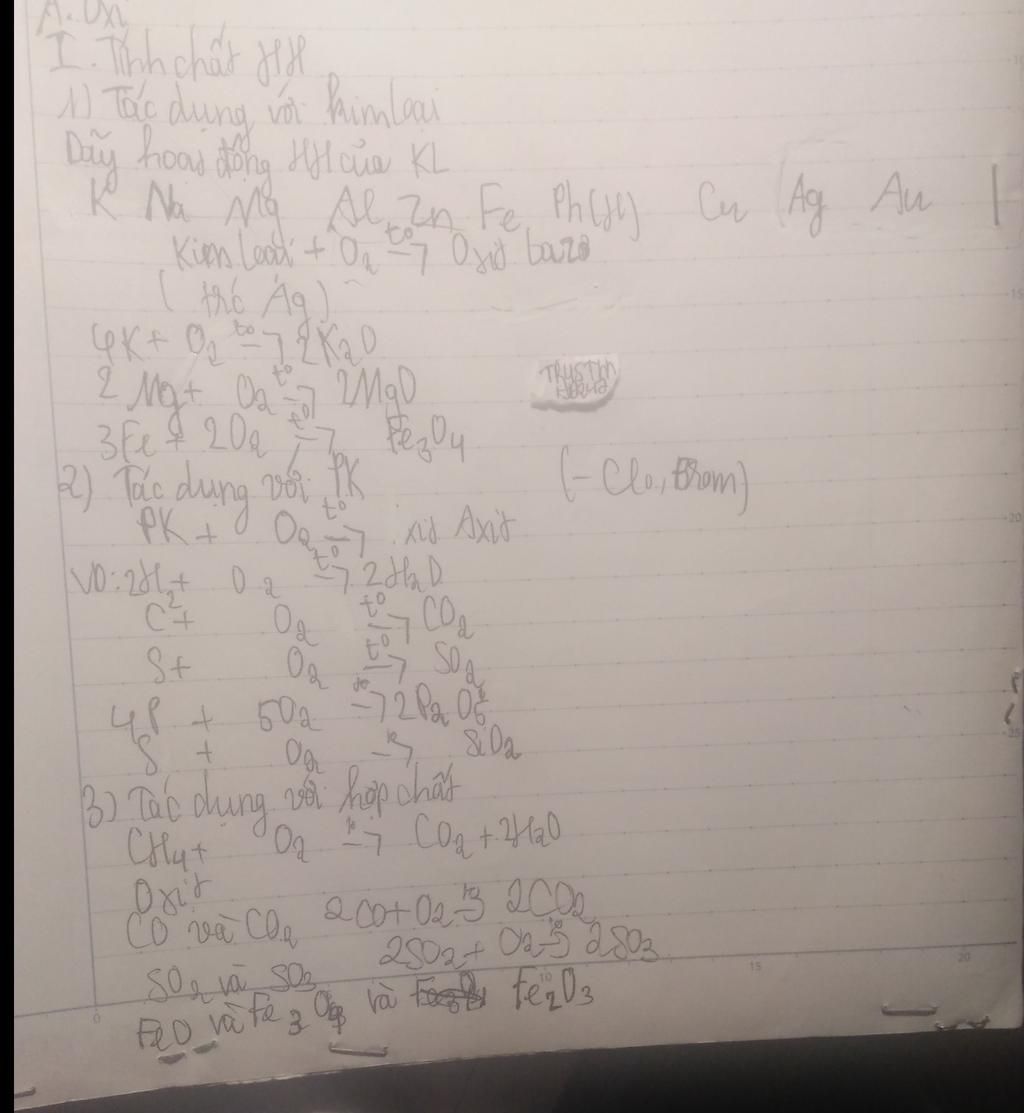 A. Oxi
I. Tính chất HH
1) Tác dụng với kim loại
Dãy hoạt động HH của KL
K Na Mg Al Zn Fe Pb(H) Cu Ag Au
Kim loại + O2 t° → Oxit bazo
(trừ Ag)
4K + O2 t° → 2K2O
2Mg + O2 t° → 2MgO
3Fe + 2O2 t° → Fe3O4
2) Tác dụng với PK (-Clo, Brom)
PK + O2 t° → xit Axit
VD: 2H2 + O2 t° → 2H2O
C + O2 t° → CO2
S + O2 t° → SO2
4P + 5O2 t° → 2P2O5
S + O2 t° → SiO2
3) Tác dụng với hợp chất
CH4 + O2 t° → CO2 + 2H2O
Oxit
CO và CO2 2CO + O2 t° → 2CO2
SO2 và SO3 2SO2 + O2 t° → 2SO3
FeO và Fe3O4 và Fe2O3